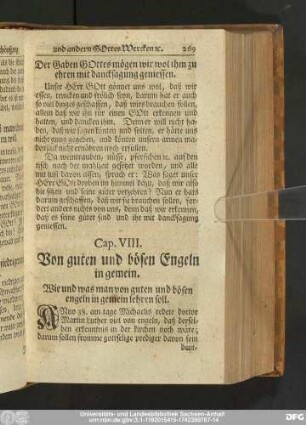 und andern GOttes Wercken ꝛc. 269
Der Gaben GOttes mögen wir wol ihm zu
ehren mit dancksagung geniessen.
Unser HErr GOtt gönnet uns wol, daß wir
essen, trincken und frölich seyn, darum hat er auch
so viel dinges geschaffen, daß wirs brauchen sollen,
allein daß wir ihn für einen GOtt erkennen und
halten, und dancken ihm. Denn er will nicht ha-
ben, daß wir sagen könten und solten, er hätte uns
nicht gnug gegeben, und könten unsern armen ma-
den sack nicht ernähren noch erfüllen.
Da weintrauben, nüsse, pfersichen ꝛc. auf den
tisch nach der mahlzeit gesetzet wurden, und alle
mit lust davon assen, sprach er: Was saget unser
HErr GOtt droben im himmel dazu, daß wir also hie
sitzen und seine güter verzehren? Nun er hats
darum geschaffen, daß wir sie brauchen sollen, for-
dert anders nichts von uns, denn daß wir erkennen,
daß es seine güter sind und ihr mit dancksagung
geniessen.
Cap. VIII.
Von guten und bösen Engeln
in gemein.
Wie und was man von guten und bösen
engeln in gemein lehren soll.
ANno 38. am tage Michaelis redete doctor
Martin Luther viel von engeln, daß derselben
erkenntnis in der kirchen noth wäre;
darum sollen fromme gottselige prediger davon sein
deut-
Universitäts- und Landesbibliothek Sachsen-Anhalt
urn:nbn:de:gbv:3:1-1192015415-1742399767-14
DFG